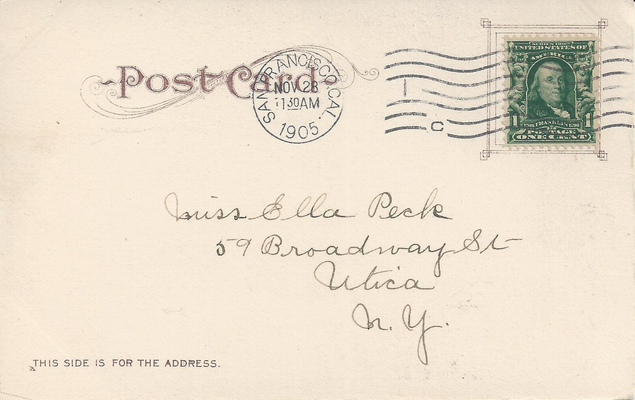 Post Card
SAN FRANCISCO, CAL.
NOV 28
1130AM
1905
C
SERIES 1902
UNITED STATES OF
AMERICA
1 FRANKLIN 1
POSTAGE
ONE CENT
Miss Ella Peck
59 Broadway St
Utica
N.Y.
THIS SIDE IS FOR THE ADDRESS.